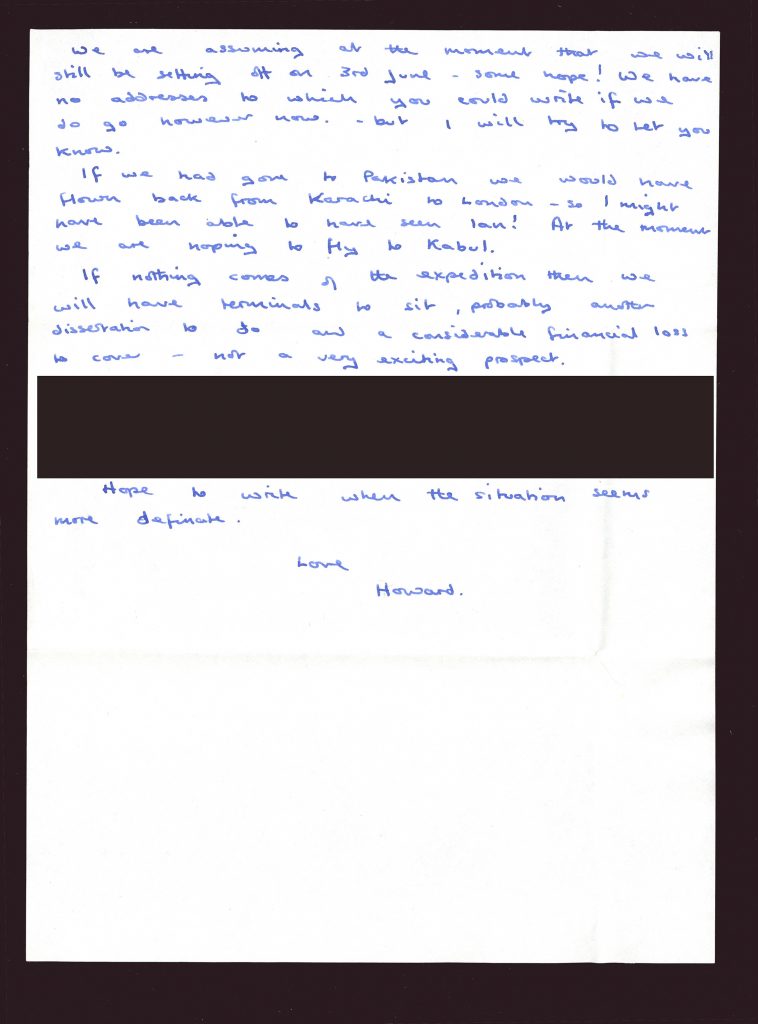 We are assuming at the moment that we will
still be setting off on 3rd June - some hope! We have
no addresses to which you could write if we
do go however now. - but I will try to let you
know.
If we had gone to Pakistan we would have
flown back from Karachi to London - so I might
have been able to have seen Ian! At the moment
we are hoping to fly to Kabul.
If nothing comes of the expedition then we
will have terminals to sit, probably another
dissertation to do and a considerable financial loss
to cover - not a very exciting prospect.
Hope to write when the situation seems
more definate.
Love
Howard.